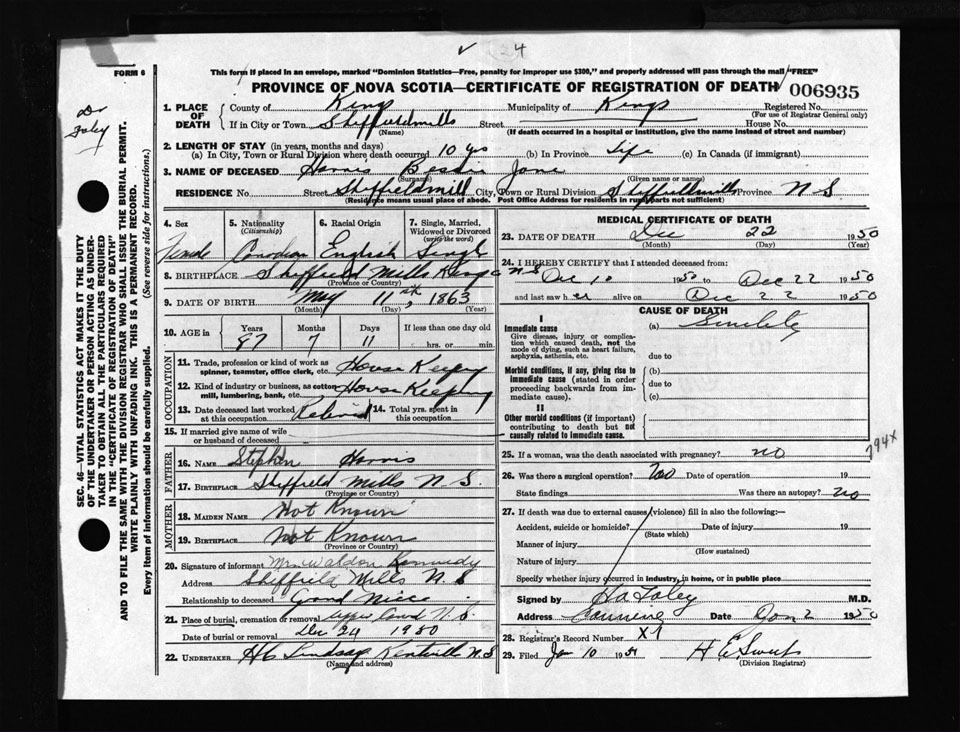 24
FORM 6
This form if placed in an envelope, marked "Dominion Statistics—Free, penalty for improper use $300," and properly addressed will pass through the mail "FREE"
PROVINCE OF NOVA SCOTIA—CERTIFICATE OF REGISTRATION OF DEATH
006935
Dr Foley
SEC. 46—VITAL STATISTICS ACT MAKES IT THE DUTY
OF THE UNDERTAKER OR PERSON ACTING AS UNDER-
TAKER TO OBTAIN ALL THE PARTICULARS REQUIRED
IN THE "CERTIFICATE OF REGISTRATION OF DEATH"
AND TO FILE THE SAME WITH THE DIVISION REGISTRAR WHO SHALL ISSUE THE BURIAL PERMIT.
WRITE PLAINLY WITH UNFADING INK. THIS IS A PERMANENT RECORD.
Every item of information should be carefully supplied. (See reverse side for instructions.)
1. PLACE OF DEATH County of Kings Municipality of Kings Registered No.
(For use of Registrar General only)
If in City or Town Sheffieldmills Street House No.
(Name) (If death occurred in a hospital or institution, give the name instead of street and number)
2. LENGTH OF STAY (in years, months and days)
(a) In City, Town or Rural Division where death occurred 10 yrs (b) In Province Life (c) In Canada (if immigrant)
3. NAME OF DECEASED Harris Bessie Jane
(Surname) (Given name or names)
RESIDENCE No. Street Sheffieldmill City, Town or Rural Division Sheffieldmills Province N S
(Residence means usual place of abode. Post Office Address for residents in rural parts not sufficient)
4. Sex
Female
5. Nationality
(Citizenship)
Canadian
6. Racial Origin
English
7. Single, Married, Widowed or Divorced
(write the word)
Single
8. BIRTHPLACE Sheffield Mills Kings N S
(Province or Country)
9. DATE OF BIRTH May 11th, 1863
(Month) (Day) (Year)
10. AGE in Years Months Days If less than one day old
87 7 11 hrs. or min.
OCCUPATION
11. Trade, profession or kind of work as spinner, teamster, office clerk, etc. House Keeping
12. Kind of industry or business, as cotton mill, lumbering, bank, etc. House Keeping
13. Date deceased last worked at this occupation Retired 14. Total yrs. spent in this occupation
15. If married give name of wife or husband of deceased
FATHER
16. NAME Stephen Harris
17. BIRTHPLACE Sheffield Mills N. S.
(Province or Country)
MOTHER
18. MAIDEN NAME Not Known
19. BIRTHPLACE Not Known
(Province or Country)
20. Signature of informant Mrs Waldon Kennedy
Address Sheffield Mills N S
Relationship to deceased Grand Niece
21. Place of burial, cremation or removal N. S.
Date of burial or removal Dec 24 1950
22. UNDERTAKER H C Lindsay Kentville N. S
(Name and address)
MEDICAL CERTIFICATE OF DEATH
23. DATE OF DEATH Dec 22 1950
(Month) (Day) (Year)
24. I HEREBY CERTIFY that I attended deceased from:
Dec 10 1950 to Dec 22 1950
and last saw her alive on Dec 22 1950
CAUSE OF DEATH
I
Immediate cause
Give disease, injury or complication which caused death, not the mode of dying, such as heart failure, asphyxia, asthenia, etc.
(a) Senility
due to
Morbid conditions, if any, giving rise to immediate cause (stated in order proceeding backwards from immediate cause)
(b)
due to
(c)
II
Other morbid conditions (if important) contributing to death but not causally related to immediate cause.
794X
25. If a woman, was the death associated with pregnancy? no
26. Was there a surgical operation? No Date of operation 19
State findings Was there an autopsy? no
27. If death was due to external causes (violence) fill in also the following:—
Accident, suicide or homicide? Date of injury 19
(State which)
Manner of injury
(How sustained)
Nature of injury
Specify whether injury occurred in industry, in home, or in public place
Signed by Foley M.D.
Address Canning Date Jan 2 1950
28. Registrar's Record Number X7
29. Filed Jan 10 1951
(Division Registrar)